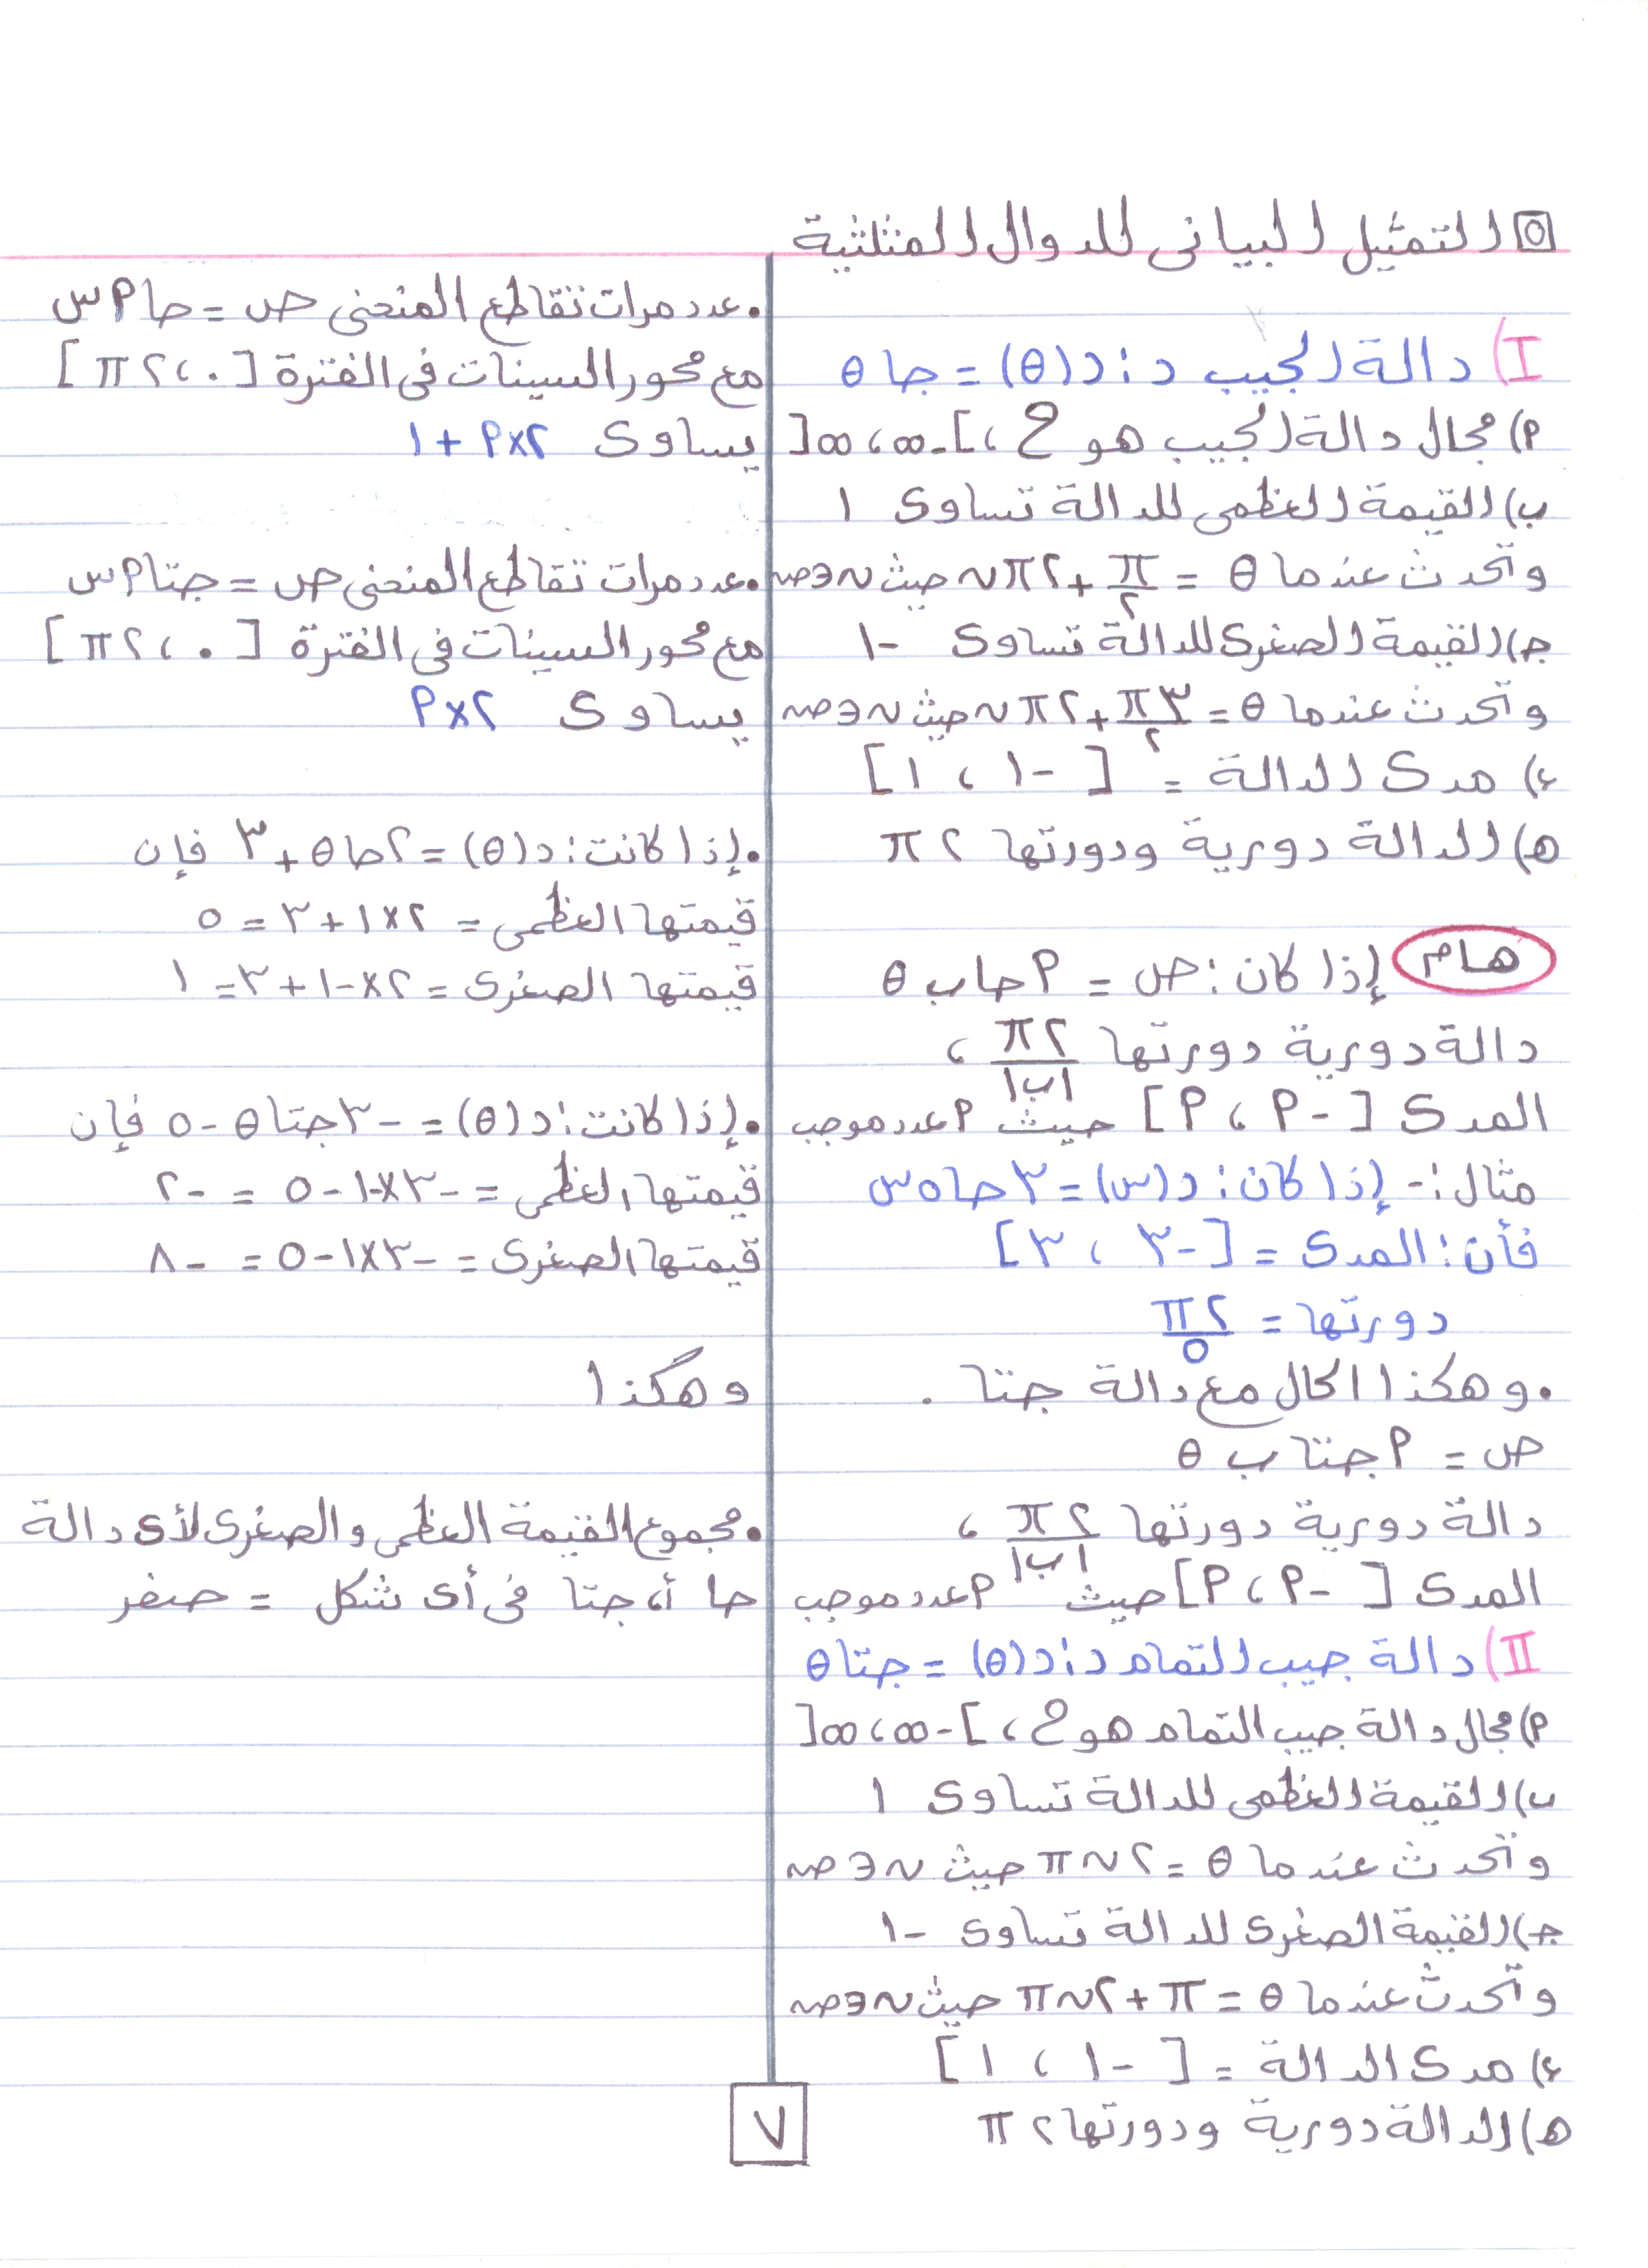 ٥ التمثيل البيانى للدوال المثلثية
I) دالة الجيب د : د(θ) = جا θ
أ) مجال دالة الجيب هو ح ، ]-∞ ، ∞[
ب) القيمة العظمى للدالة تساوى ١
وتحدث عندما θ = π/٢ + ٢π ن حيث ن ∈ ص
ج) القيمة الصغرى للدالة تساوى -١
وتحدث عندما θ = ٣π/٢ + ٢π ن حيث ن ∈ ص
ء) مدى الدالة = [-١ ، ١]
ه) الدالة دورية ودورتها ٢ π
هام إذا كان : ص = أ حا ب θ
دالة دورية دورتها ٢π/|ب| ،
المدى [-أ ، أ] حيث أ عدد موجب
مثال :- إذا كان : د(س) = ٣ حا ٥ س
فأن : المدى = [-٣ ، ٣]
دورتها = ٢π/٥
• وهكذا الحال مع دالة جتا .
ص = أ جتا ب θ
دالة دورية دورتها ٢π/|ب| ،
المدى [-أ ، أ] حيث أ عدد موجب
II) دالة جيب التمام د : د(θ) = جتا θ
أ) مجال دالة جيب التمام هو ح ، ]-∞ ، ∞[
ب) القيمة العظمى للدالة تساوى ١
وتحدث عندما θ = ٢ ن π حيث ن ∈ ص
ج) القيمة الصغرى للدالة تساوى -١
وتحدث عندما θ = π + ٢ ن π حيث ن ∈ ص
ء) مدى الدالة = [-١ ، ١]
ه) الدالة دورية ودورتها ٢ π
• عدد مرات تقاطع المنحنى ص = حا أ س
مع محور السينات فى الفترة [٠ ، ٢ π]
يساوى ٢×أ + ١
• عدد مرات تقاطع المنحنى ص = جتا أ س
مع محور السينات فى الفترة [٠ ، ٢ π]
يساوى ٢×أ
• إذا كانت : د(θ) = ٢ حا θ + ٣ فإن
قيمتها العظمى = ٢×١ + ٣ = ٥
قيمتها الصغرى = ٢×-١ + ٣ = ١
• إذا كانت : د(θ) = -٣ جتا θ - ٥ فإن
قيمتها العظمى = -٣×-١ - ٥ = -٢
قيمتها الصغرى = -٣×١ - ٥ = -٨
وهكذا
• مجموع القيمة العظمى والصغرى لأى دالة
حا أ، جتا فى أى شكل = صفر
٧